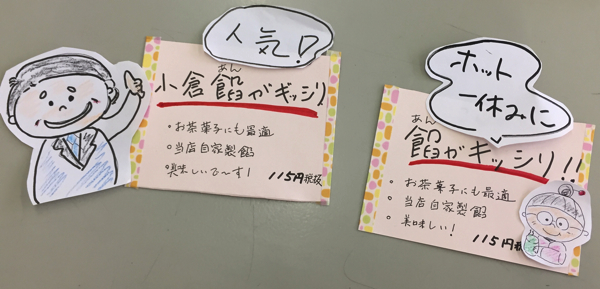 人気!?
あん
小倉餡がギッシリ
・お茶菓子にも最適
・当店自家製餡
・美味しいで〜す!
115円税抜
ホット
一休みに
あん
餡がギッシリ!!
・お茶菓子にも最適
・当店自家製餡
・美味しい!
115円税